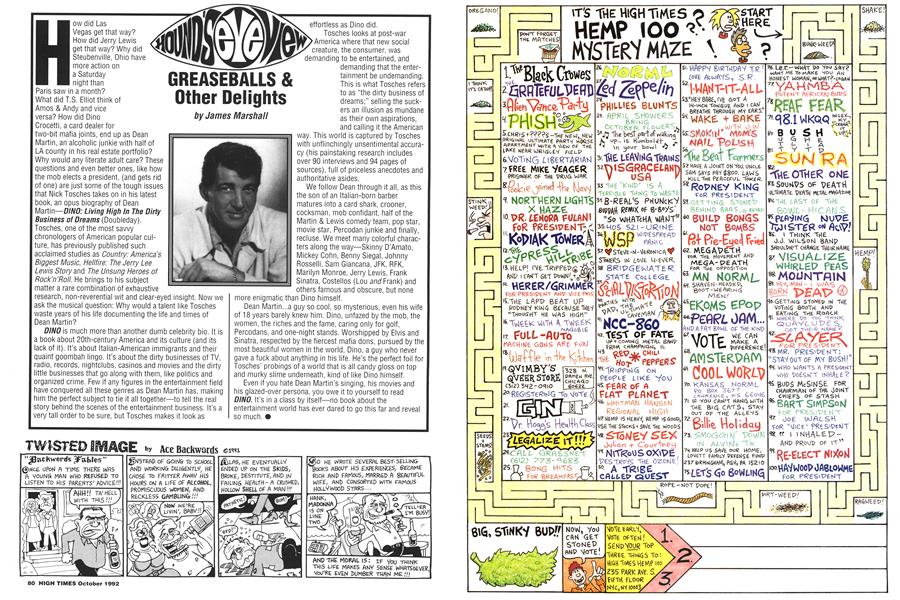 HOUND'S EYE VIEW
GREASEBALLS &
Other Delights
by James Marshall
How did Las
Vegas get that way?
How did Jerry Lewis
get that way? Why did
Steubenville, Ohio have
more action on
a Saturday
night than
Paris saw in a month?
What did T.S. Elliot think of
Amos & Andy and vice
versa? How did Dino
Crocetti, a card dealer for
two-bit mafia joints, end up as Dean
Martin, an alcoholic junkie with half of LA
county in his real estate portfolio?
Why would any literate adult care? These
questions and even better ones, like how
the mob elects a president, (and gets rid
of one) are just some of the tough issues
that Nick Tosches takes on in his latest
book, an opus biography of Dean
Martin—DINO: Living High In The Dirty
Business of Dreams (Doubleday).
Tosches, one of the most savvy
chronologers of American popular cul-
ture, has previously published such
acclaimed studies as Country: America's
Biggest Music, Hellfire: The Jerry Lee
Lewis Story and The Unsung Heroes of
Rock'n'Roll. He brings to his subject
matter a rare combination of exhaustive
research, non-reverential wit and clear-eyed insight. Now we
ask the musical question: Why would a talent like Tosches
waste years of his life documenting the life and times of
Dean Martin?
DINO is much more than another dumb celebrity bio. It is
a book about 20th-century America and its culture (and its
lack of it). It's about Italian-American immigrants and their
quaint goombah lingo. It's about the dirty businesses of TV,
radio, records, nightclubs, casinos and movies and the dirty
little businesses that go along with them, like politics and
organized crime. Few if any figures in the entertainment field
have conquered all these genres as Dean Martin has, making
him the perfect subject to tie it all together—to tell the real
story behind the scenes of the entertainment business. It's a
very tall order to be sure, but Tosches makes it look as
effortless as Dino did.
Tosches looks at post-war
America where that new social
creature, the consumer, was
demanding to be entertained, and
demanding that the enter-
tainment be undemanding.
This is what Tosches refers
to as "the dirty business of
dreams;" selling the suck-
ers an illusion as mundane
as their own aspirations,
and calling it the American
way. This world is captured by Tosches
with unflinchingly unsentimental accuracy
(his painstaking research includes
over 90 interviews and 94 pages of
sources), full of priceless anecdotes and
authoritative asides.
We follow Dean through it all, as this
the son of an Italian-born barber
matures into a card shark, crooner,
cocksman, mob confidant, half of the
Martin & Lewis comedy team, pop star,
movie star, Percodan junkie and finally,
recluse. We meet many colorful charac-
ters along the way—Skinny D'Amato,
Mickey Cohn, Benny Siegal, Johnny
Rosselli, Sam Giancana, JFK, RFK,
Marilyn Monroe, Jerry Lewis, Frank
Sinatra, Costellos (Lou and Frank) and
others famous and obscure, but none
more enigmatic than Dino himself.
Dean Martin...a guy so cool, so mysterious, even his wife
of 18 years barely knew him. Dino, unfazed by the mob, the
women, the riches and the fame, caring only for golf,
Percodans, and one-night stands. Worshipped by Elvis and
Sinatra, respected by the fiercest mafia dons, pursued by the
most beautiful women in the world, Dino, a guy who never
gave a fuck about anything in his life. He's the perfect foil for
Tosches' probings of a world that is all candy gloss on top
and murky slime underneath, kind of like Dino himself.
Even if you hate Dean Martin's singing, his movies and
his glazed-over persona, you owe it to yourself to read
DINO. It's in a class by itself—no book about the
entertainment world has ever dared to go this far and reveal
so much.
TWISTED IMAGE by Ace Backwords ©1992
"Backwords Fables"
ONCE UPON A TIME THERE WAS
A YOUNG MAN WHO REFUSED TO
LISTEN TO HIS PARENTS' ADVICE!!!
AHH!! TA' HELL
WITH THIS!!!
INSTEAD OF GOING TO SCHOOL
AND WORKING DILIGENTLY, HE
CHOSE TO FRITTER AWAY HIS
HOURS ON A LIFE OF ALCOHOL,
PROMISCUOUS WOMEN, AND
RECKLESS GAMBLING!!!
NOW WE'RE
LIVIN', BABY!!
ALAS, HE EVENTUALLY
ENDED UP ON THE SKIDS,
BROKE, DESTITUTE AND IN
FAILING HEALTH—A CRUSHED,
HOLLOW SHELL OF A MAN!!!
SO HE WROTE SEVERAL BEST-SELLING
BOOKS ABOUT HIS EXPERIENCE, BECAME
RICH AND FAMOUS, MARRIED A BEAUTIFUL
WIFE, AND CONSORTED WITH FAMOUS
HOLLYWOOD STARS...
HANK,
MADONNA
IS ON
LINE
TWO
TELL'ER
I'M BUSY!
AND THE MORAL IS: IF YOU THINK
THIS LIFE MAKES ANY SENSE WHATSOEVER,
YOU'RE EVEN DUMBER THAN ME!!!
80 HIGH TIMES October 1992
OREGANO!
IT'S THE HIGH TIMES
HEMP 100
MYSTERY MAZE
START
HERE
SHAKE!
DON'T FORGET
THE MATCHES!
BUNK-WEED!
I THINK
IT'S CATNIP!
STINK
WEED!
SEEDS 'N'
STEMS!
HEMP!
ROPE-NOT DOPE!
DIRT-WEED!
RAGWEED!
1. The Black Crowes
2. GRATEFUL DEAD
3. Alien Dance Party
4. PHISH
6. VOTING LIBERTARIAN
7. FREE MIKE YEAGER
PRISONER OF THE DRUG WAR
8. Pookie joined the Navy
9. NORTHERN LIGHTS
X HAZE
10. DR. LENORA FULANI
FOR PRESIDENT
11. KODIAK TOWER
12. CYPRESS HILL TRIBE
13. HELP! I'VE TRIPPED
AND I CAN'T GET DOWN!
14. HERER/GRIMMER
FOR PRESIDENT AND VICE PRES.
16. TWEEK WITH A TWEEK
17. FULL-AUTO
MACHINE GUNS ARE FUN!
18. Waffle in the Kitchen
19. QVIMBY'S
QVEER STORE
(312) 342-0910
328 N.
DAMEN AVE
CHICAGO
60622
20. REGISTERING TO VOTE
21. GIN
22. Dr. Hogg's Health Class
LEGALIZE IT!!!
CALL GRASSNET
25. BONG HITS
FOR BREAKFAST
NORML
Led Zeppelin
PHILLIES BLUNTS
APRIL SHOWERS
BRING
OCTOBER FLOWERS
THE LEAVING TRAINS
DISGRACELAND
USA
THE "KIND" IS A
TERRIBLE THING TO WASTE
B-REAL'S PHUNKY
BUDDAH REMIX OF B-BOY'S
"SO WHATCHA WANT"
HOS 521-URINE
WSP WIDESPREAD
PANIC
STEVE-N-VERONICA
STONERS IN LOVE 4-EVER
BRIDGEWATER
STATE COLLEGE
SOCIAL DISTORTION
NCC-860
TEST OF FATE
UP+COMING METAL BAND
FROM CHAMPAIGN, IL
RED HOT CHILI
PEPPERS
TRIPPING ON
PEOPLE LIKE YOU
FEAR OF A
FLAT PLANET
WHITMAN HANSON
REGIONAL HIGH
47. HEMP IS HEAVY, HEMP IS GOOD,
USE THE STOCKS+SAVE THE WOODS
STONEY SEX
Julian + Courtney
NITROUS OXIDE
DESTROYS THE OZONE!
50. A TRIBE
CALLED QUEST
51. HAPPY BIRTHDAY TE
LOVE ALWAYS, S.R.
I-WANT-IT-ALL
53. "HEY BABE, I'VE GOT A
10-INCH TONGUE AND I CAN
BREATHE THROUGH MY EARS"
WAKE + BAKE
SMOKIN' MOMS
NAIL POLISH
The Beat Farmers
RODNEY KING
FOR PRESIDENT
GETTING STONED
BEHIND BARS
BUILD BONGS
NOT BOMBS
Pot Pie-Eyed Fried
MEGADETH
FOR THE MOVEMENT AND
MEGA-DEATH
FOR THE OPPOSITION
MN NORML
SHAVEN-HEADED,
BOOT-WEARING
MEN!
EKOMS EPOD
PEARL JAM...
VOTE WE CAN
MAKE A
DIFFERENCE!
AMSTERDAM
COOL WORLD
KANSAS NORML
71. IF YOU CAN'T HANG WITH
THE BIG CATS, STAY
OUT OF THE ALLEYS
Billie Holiday
SMOGGIN' DOWN
IN ALVIN TX
74. HELP US SAVE OUR HOME,
75. LET'S GO BOWLING
YAHMBA
PATENT AFRICAN BUDS
REAF FEAR
98.1 WKQQ
BUSH
SUN RA
THE OTHER ONE
SOUNDS OF DEATH
ULTIMATE DEATH METAL MAGAZINE
THE LAST OF THE
BOWL-HICANS
PLAYING NUDE
TWISTER ON ACID!
I THINK THE
J.J. WILSON BAND
SHOULDN'T CHANGE THEIR NAME
VISUALIZE
WHIRLED PEAS
MOUNTAIN
BORN DEAD
GETTING STONED IN THE
VOTING BOOTH AND
EATING THE ROACH
QUAYLUDES
SLAYER
MR. PRESIDENT:
"STAY OUT OF MY BUSH"
WHO WANTS A PRESIDENT
WHO DOESN'T INHALE?
BUDS McSINSE FOR
CHAIRMAN OF THE JOINT
CHIEFS OF STASH
BART SIMPSON
FOR PRESIDENT
JOE WALSH
FOR "VICE" PRESIDENT
"I INHALED-
AND PROUD OF IT"
RE-ELECT NIXON
100. HAYWOOD JABLOWME
FOR PRESIDENT
BIG, STINKY BUD!!
NOW, YOU
CAN GET
STONED
AND VOTE!
VOTE EARLY,
VOTE OFTEN!
SEND YOUR TOP
THREE THINGS TO:
HIGH TIMES HEMP 100
235 PARK AVE. S.
FIFTH FLOOR
NYC, NY 10003
1.
2.
3.